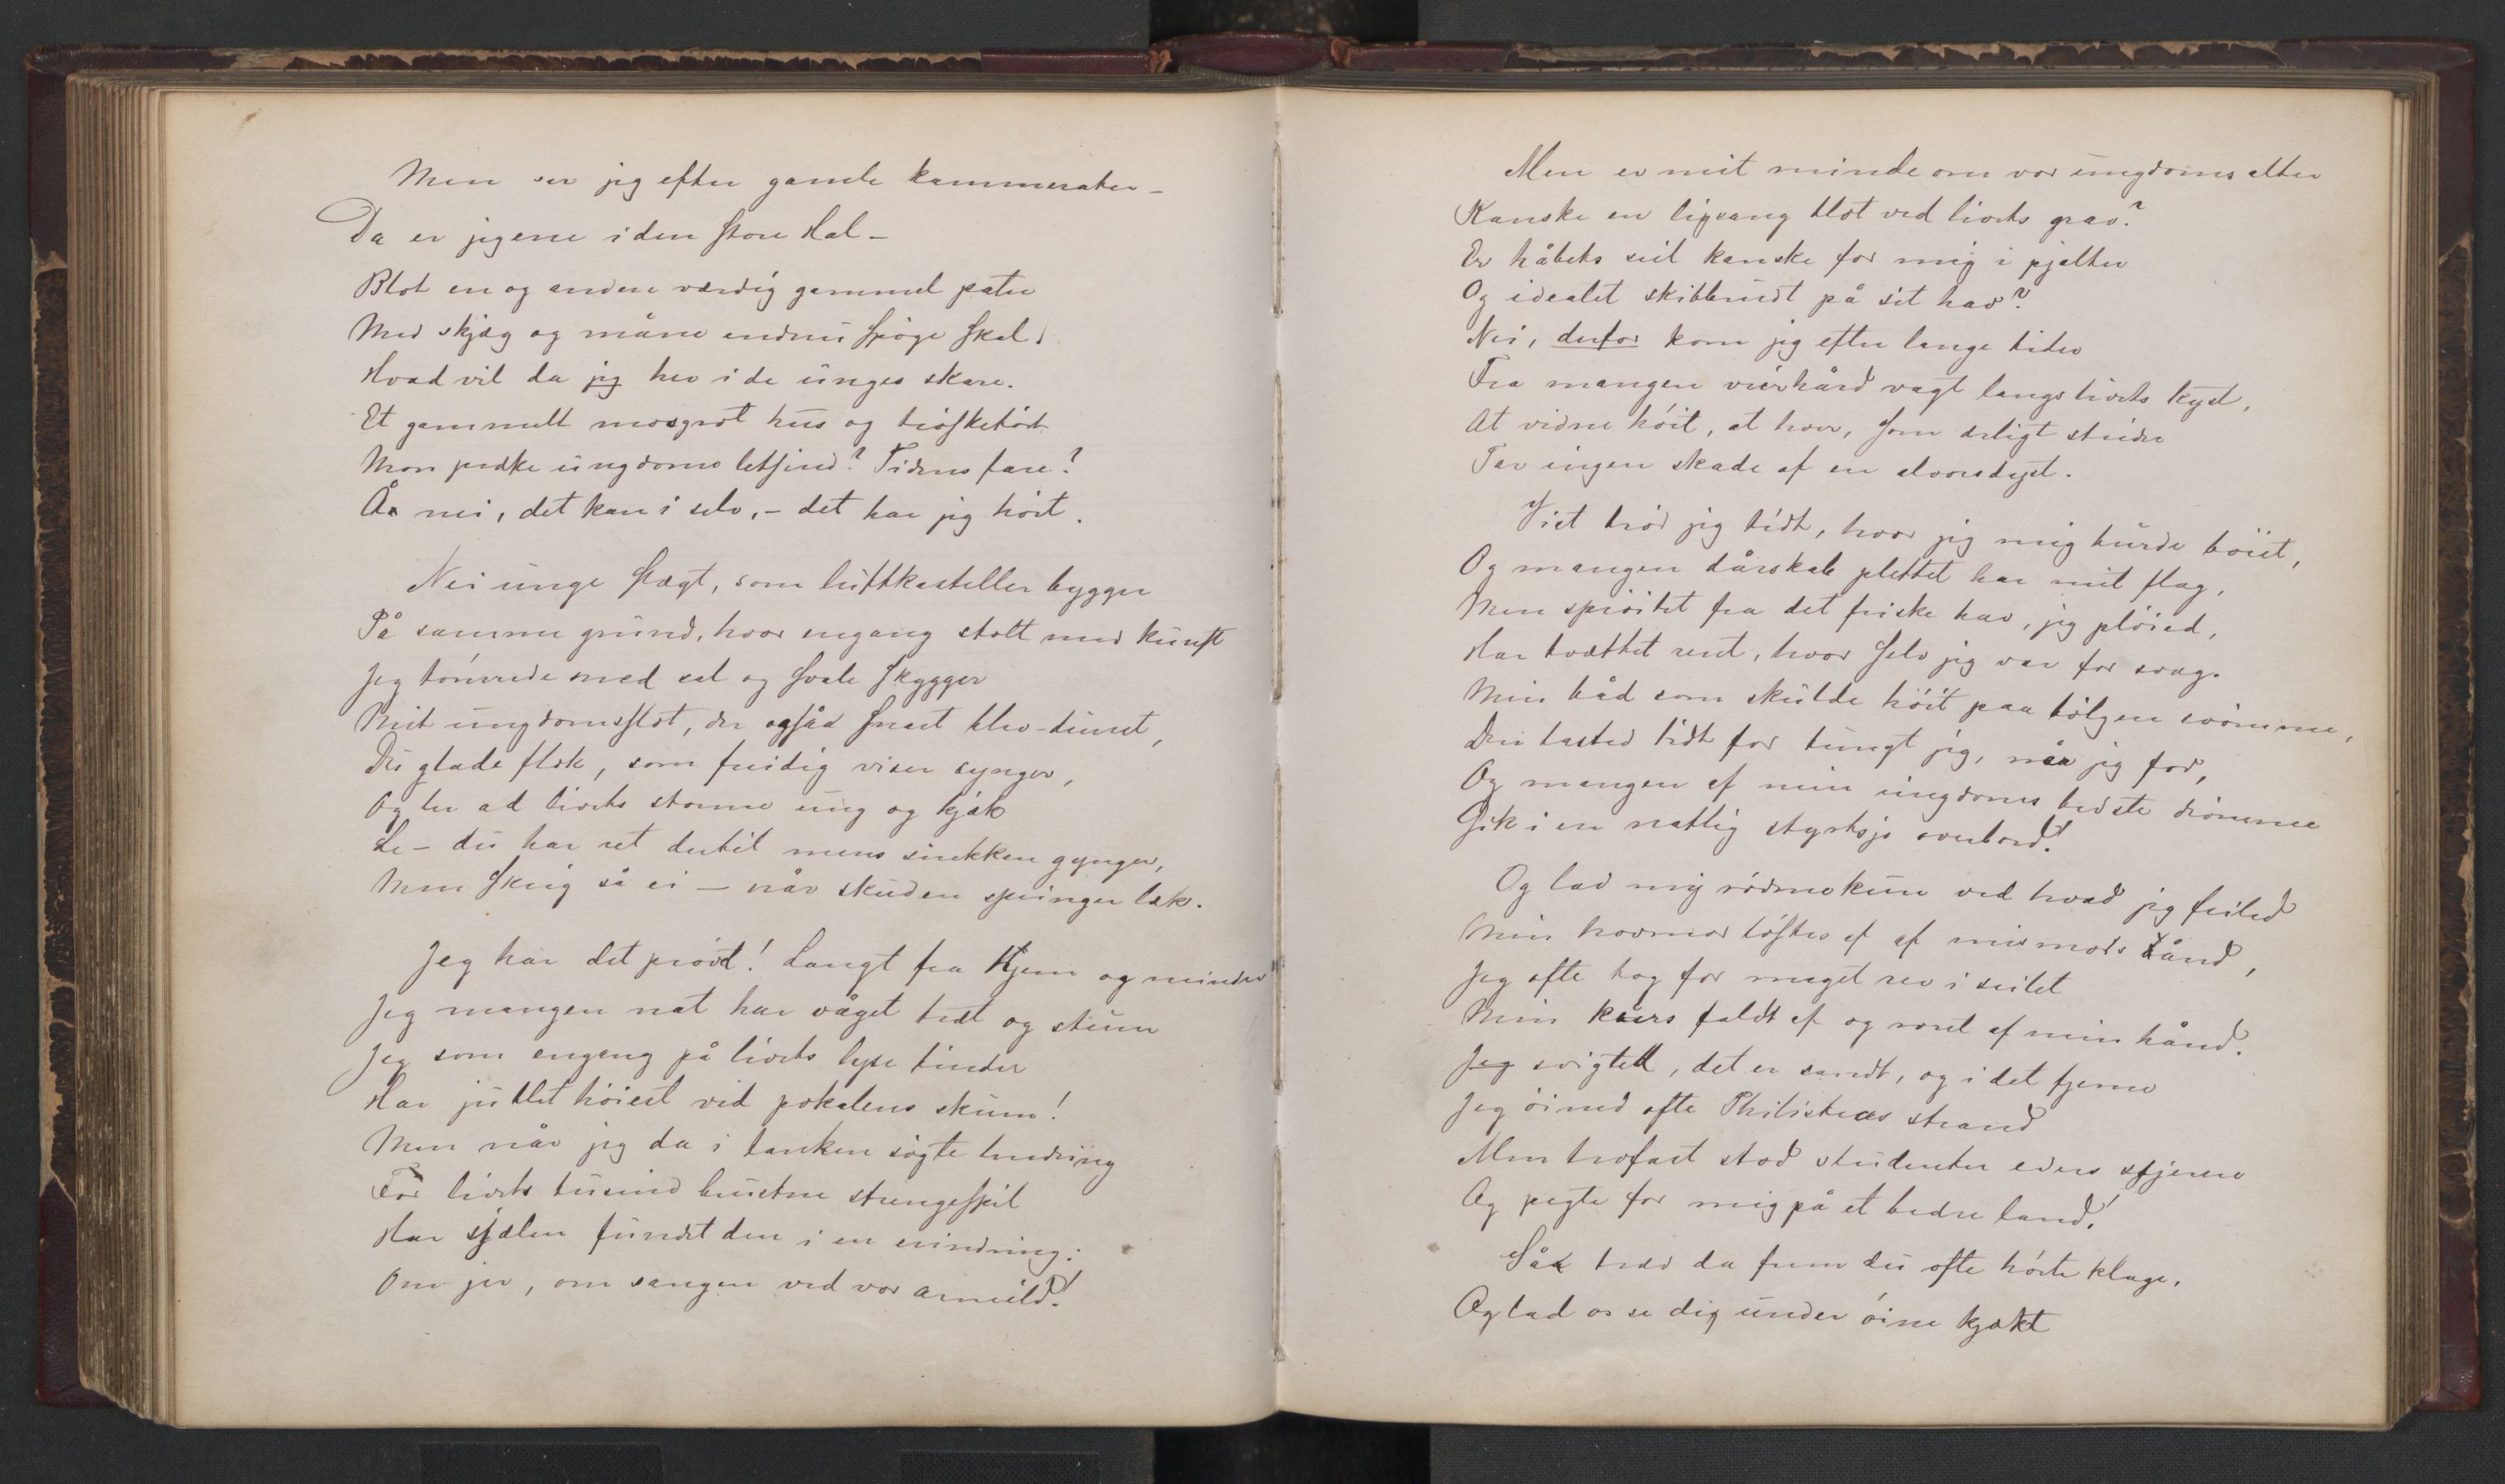 Men ser jeg efter gamle kammerater –
Da er jeg ene i den store Hal –
Blot en og anden værdig gammel pater
Med skjæg og måne endnu spøge skal.
Hvad vil da jeg her i de unges skare.
Et gammelt mosgrot hus og trøsketørt
Mon præke ungdoms letsind? Tidens fare?
Å nei, det kan i selv, – det har jeg hørt.
Nei unge slægt, som luftkasteller bygger
På samme grund, hvor engang stolt med kunst
Jeg tømrede med sal og svale skygger
Mit ungdomsslot, der også snart blev dunst,
Du glade flok, som freidig viser synger,
Og ler ad livets storme ung og kjæk
Le – du har ret dertil mens snekken gynger,
Men skrig så ei – når skuden springer læk.
Jeg har det prøvd! Langt fra Hjem og minder
Jeg mangen nat har våget træt og stum
Jeg som engang på livets lyse tinder
Har jublet høiest ved pokalens skum!
Men når jeg da i tanken søgte lindring
For livets tusind brustne strengespil
Har sjælen fundet den i en erindring:
Om jer, om sangen ved vor arneild!
Men er mit minde om vor ungdoms alter
Kanske en ligsang blot ved livets grav?
Er håbets seil kanske for mig i pjalter
Og idealet skibbrudt på sit hav?
Nei, derfor kom jeg efter lange tider
Fra mangen veirhård vagt langs livets kyst,
At vidne høit, at hver, som ærligt strider
Tar ingen skade af en alvorsdyst.
Vist trød jeg tidt, hvor jeg mig burde bøiet,
Og mangen dårskab plettet har mit flag,
Men sprøitet fra det friske hav, jeg pløied,
Har tvættet rent, hvor selv jeg var for svag.
Min båd som skulde høit paa bølgen svømme,
Den lasted tidt for tungt jeg, når jeg for,
Og mangen af min ungdoms bedste drømme
Gik i en natlig styrtsjø overbord!
Og lad mig rødme kun ved hvad jeg feiled
Min hovmod løftes af af mismods ånd,
Jeg ofte tog for meget rev i seilet
Min kurs faldt af og roret af min hånd.
Jeg svigted, det er sandt, og i det fjerne
Jeg øined ofte Philisteas strand
Men trofast stod studenter eders stjerne
Og pegte for mig på et bedre land!
Så træd da frem du ofte hørte klage,
Og lad os se dig under øine kjækt